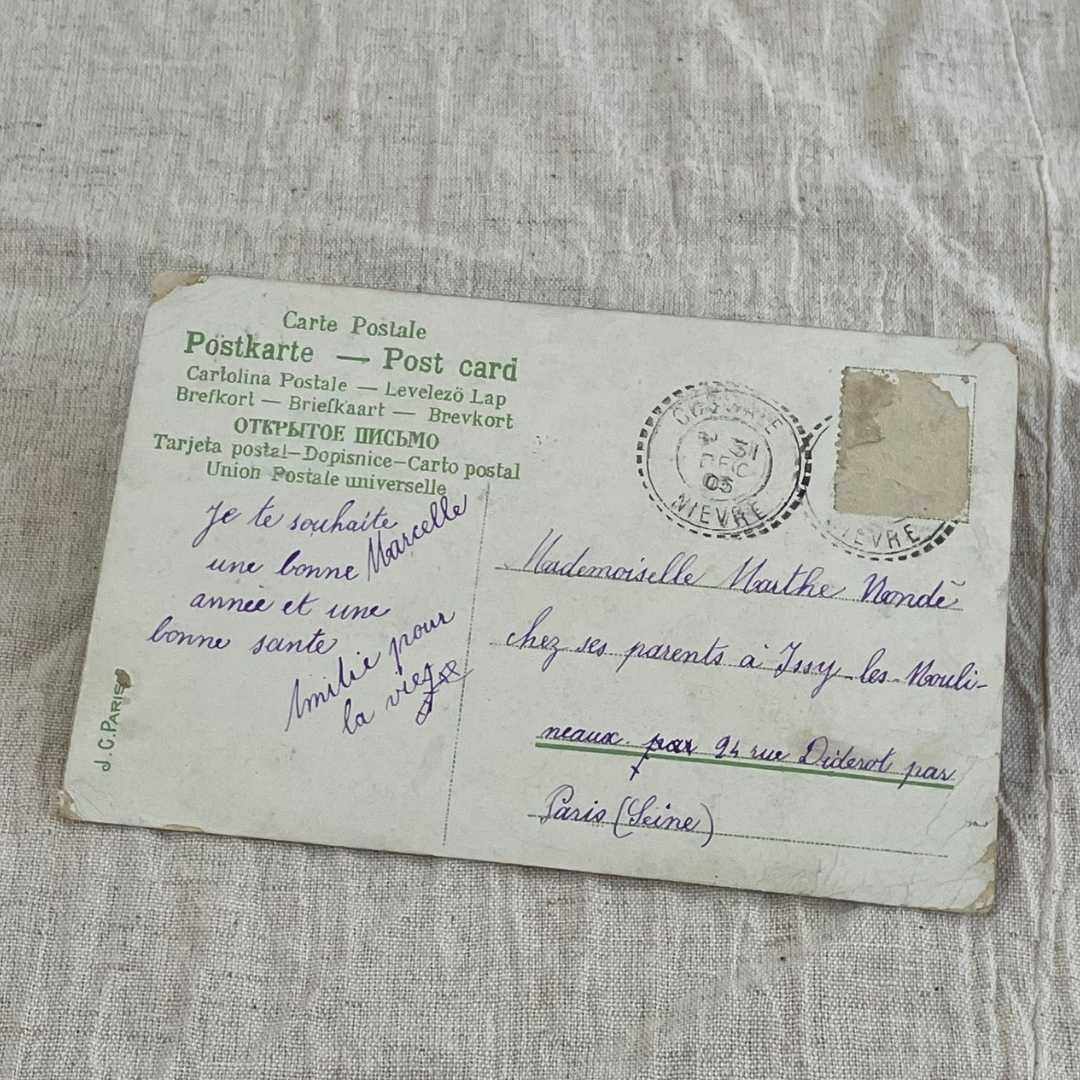 Carte Postale
Postkarte — Post card
Cartolina Postale — Levelező Lap
Brefkort — Briefkaart — Brevkort
ОТКРЫТОЕ ПИСЬМО
Tarjeta postal—Dopisnice—Carto postal
Union Postale universelle
Je te souhaite
une bonne
année et une
bonne sante
Marcelle
Amitié pour
la vie
J.C. PARIS
31
DEC
05
NIEVRE
NIEVRE
Mademoiselle Marthe
chez ses parents à Issy-les-Mouli-
neaux. par 24 rue Diderot par
Paris (Seine)